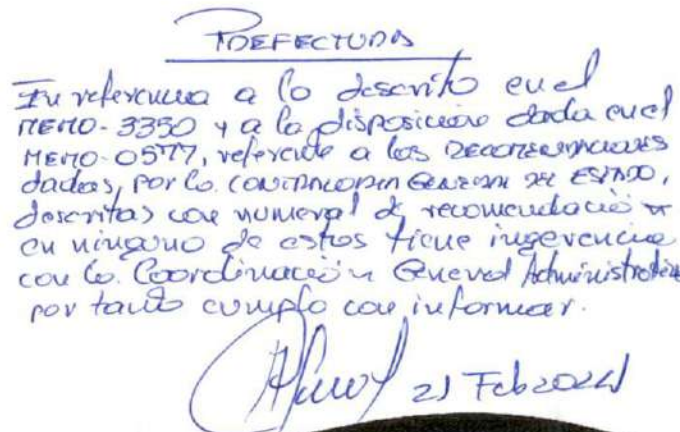 PREFECTURA
En referencia a lo descrito en el
MEMO-3350 y a la disposición dada en el
MEMO-0577, referente a las RECOMENDACIONES
dadas, por la CONTRALORIA GENERAL DEL ESTADO,
descritas con numeral de recomendación
en ninguno de estos tiene ingerencia
con la Coordinación General Administrativa
por tanto cumplo con informar.
21 Feb 2024